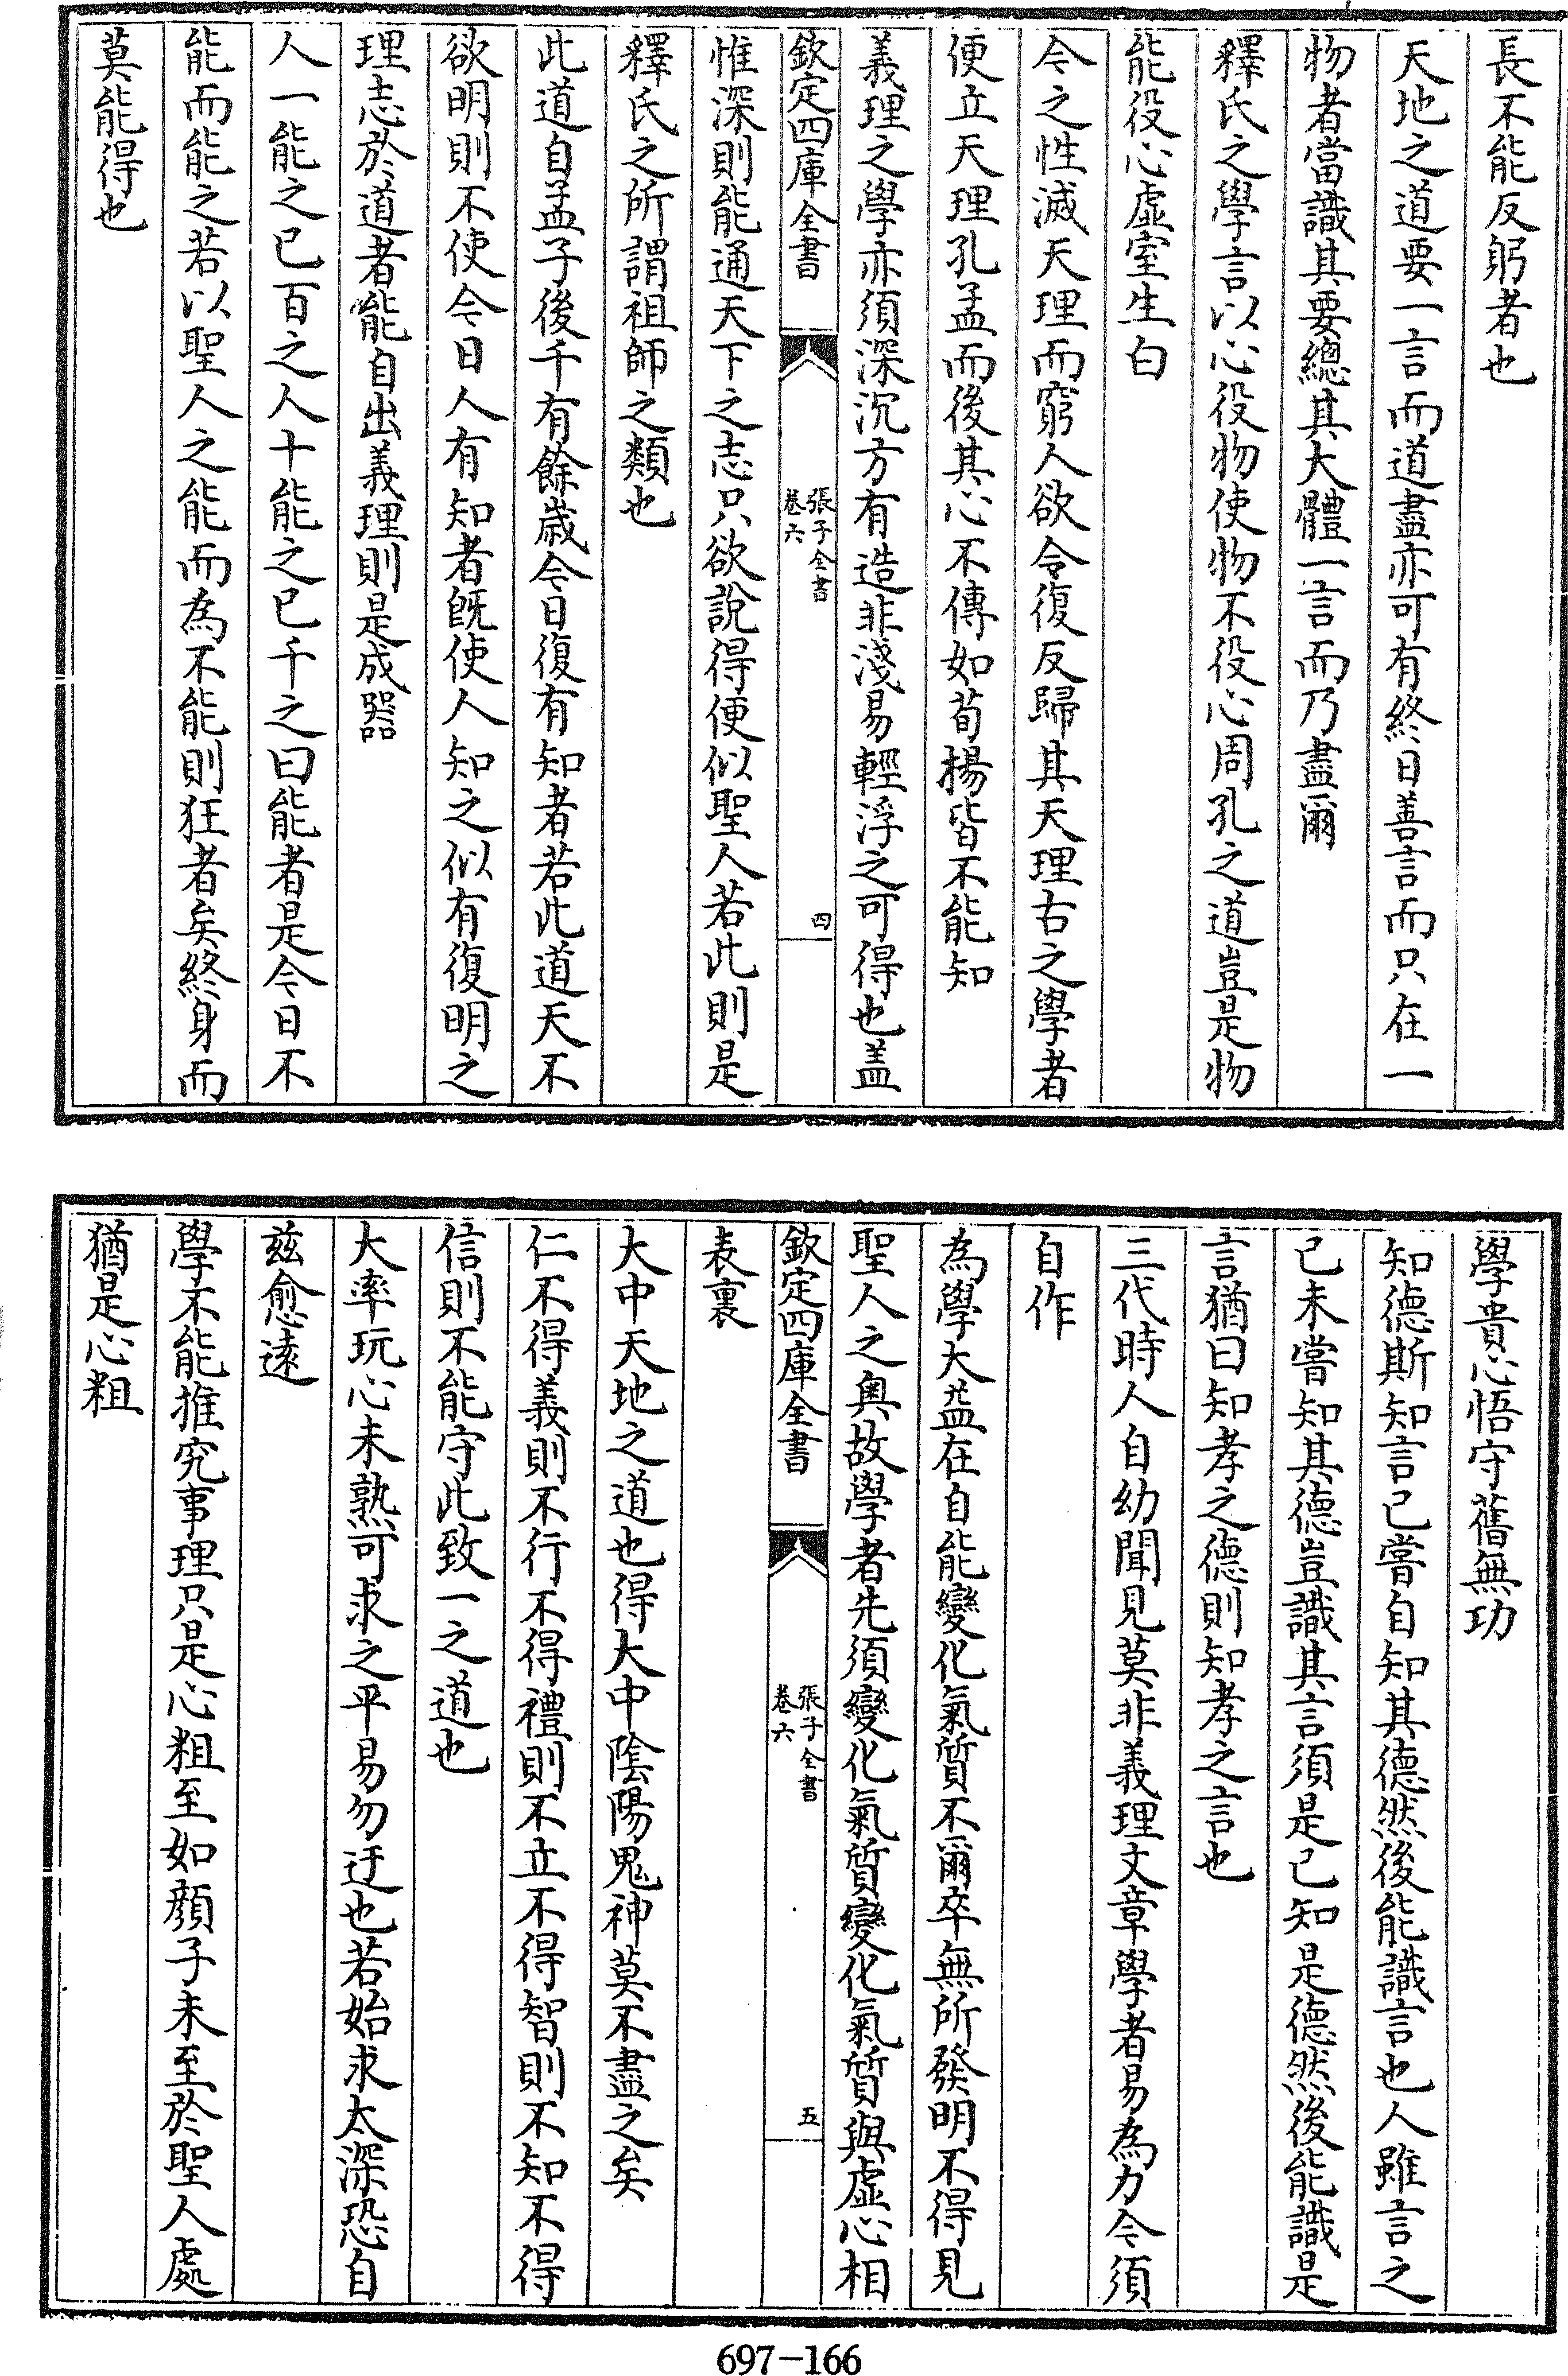 長不能反躬者也
天地之道要一言而道盡亦可有終日善言而只在一
物者當識其要總其大體一言而乃盡爾
釋氏之學言以心役物使物不役心周孔之道豈是物
能役心虛室生白
今之性滅天理而窮人欲今復反歸其天理古之學者
便立天理孔孟而後其心不傳如荀楊皆不能知
義理之學亦須深沉方有造非淺易輕浮之可得也盖
欽定四庫全書
張子全書
卷六
四
惟深則能通天下之志只欲說得便似聖人若此則是
釋氏之所謂祖師之類也
此道自孟子後千有餘歲今日復有知者若此道天不
欲明則不使今日人有知者既使人知之似有復明之
理志於道者能自出義理則是成器
人一能之已百之人十能之已千之曰能者是今日不
能而能之若以聖人之能而為不能則狂者矣終身而
莫能得也
學貴心悟守舊無功
知德斯知言已嘗自知其德然後能識言也人雖言之
已未嘗知其德豈識其言須是已知是德然後能識是
言猶曰知孝之德則知孝之言也
三代時人自幼聞見莫非義理文章學者易為力今須
自作
為學大益在自能變化氣質不爾卒無所發明不得見
聖人之奧故學者先須變化氣質變化氣質與虛心相
欽定四庫全書
張子全書
卷六
五
表裏
大中天地之道也得大中陰陽鬼神莫不盡之矣
仁不得義則不行不得禮則不立不得智則不知不得
信則不能守此致一之道也
大率玩心未熟可求之平易勿迂也若始求太深恐自
兹愈遠
學不能推究事理只是心粗至如顏子未至於聖人處
猶是心粗
697-166